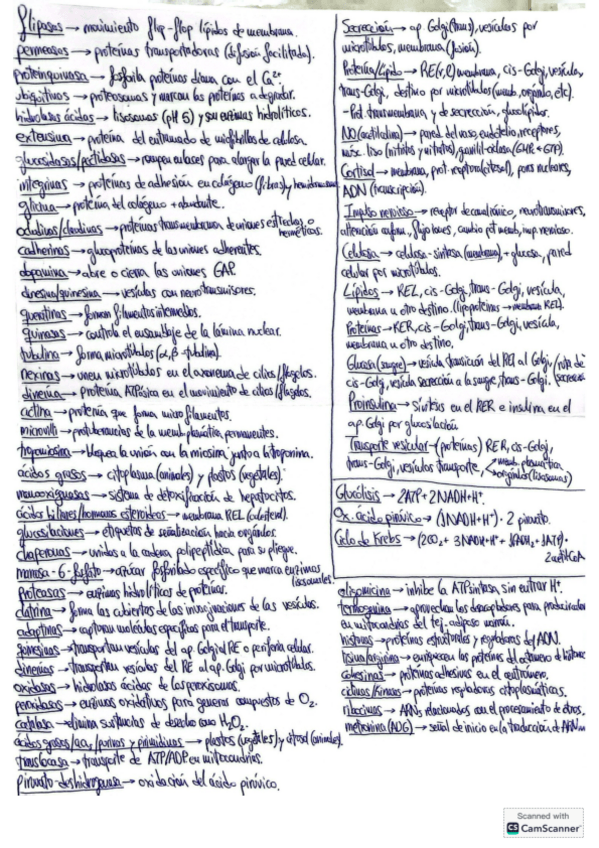 flipasas → movimiento flip-flop lípidos de membrana.
permeasas → proteínas transportadoras (difusión facilitada).
proteinquinasa → fosforila proteínas diana con el Ca²⁺.
ubiquitinas → proteosomas y marcan las proteínas a degradar.
hidrolasas ácidas → lisosomas (pH 5) y son enzimas hidrolíticos.
extensina → proteína del entramado de microfibrillas de celulosa.
glucosidasas/peptidasas → rompen enlaces para alargar la pared celular.
integrinas → proteínas de adhesión en colágeno (fibras) y
glicina → proteína del colágeno + abundante.
ocludinas/claudinas → proteínas transmembrana de uniones estrechas o herméticas.
cadherinas → glucoproteínas de las uniones adherentes.
dopamina → abre o cierra las uniones GAP.
vesículas con neurotransmisores.
queratinas → forman filamentos intermedios.
quinasas → controla el ensamblaje de la lámina nuclear.
tubulina → forma microtúbulos (α, β -tubulina).
nexinas → unen microtúbulos en el axonema de cilios/flagelos.
dineína → proteína ATPásica en el movimiento de cilios/flagelos.
actina → proteína que forma microfilamentos.
microvilli → protuberancias de la memb. plasmática permanentes.
tropomiosina → bloquea la unión con la miosina junto a la troponina.
ácidos grasos → citoplasma (animales) y plastos (vegetales).
monooxigenasas → sistema de detoxificación de hepatocitos.
ácidos biliares/hormonas esteroideas → membrana REL
glucosilaciones → etiquetas de señalización hacia orgánulos.
chaperonas → unidas a la cadena polipeptídica para su pliegue.
manosa-6-fosfato → azúcar fosforilado específico que marca enzimas lisosomales.
Proteasas → enzimas hidrolíticos de proteínas.
clatrina → forma las cubiertas de las invaginaciones de las vesículas.
adaptinas → capturan moléculas específicas para el transporte.
transportan vesículas del ap. Golgi al RE o periferia celular.
dineínas → transportan vesículas del RE al ap. Golgi por microtúbulos.
oxidasas → hidrolasas ácidas de los peroxisomas.
peroxidasas → enzimas oxidativos para generar compuestos de O₂.
catalasa → elimina sustancias de desecho como H₂O₂.
ácidos grasos/aa, purinas y pirimidinas → plastos (vegetales) y citosol (animales).
translocasa → transporte de ATP/ADP en mitocondrias.
Piruvato-deshidrogenasa → oxidación del ácido pirúvico.
Secreción → ap. Golgi (trans), vesículas por
microtúbulos, membrana (fusión).
Proteína/Lípido → RE(r,l) membrana, cis-Golgi, vesícula,
trans-Golgi, destino por microtúbulos (memb, orgánulo, etc).
-Prot. transmembrana y de secreción, glucolípidos.
NO (acetilcolina) → pared del vaso, endotelio, receptores,
músc. liso (nitritos y nitratos), guanilil-ciclasa
Cortisol → membrana, prot-receptora (citosol), poros nucleares,
ADN (transcripción).
Impulso nervioso → receptor de canal iónico, neurotransmisores,
alteración conform., flujo iones, cambio pot. memb, imp. nervioso.
Celulosa → celulosa-sintasa (membrana), + glucosa, pared
celular por microtúbulos.
Lípidos → REL, cis-Golgi, trans-Golgi, vesícula,
membrana u otro destino. (lipoproteínas → REL).
Proteínas → RER, cis-Golgi, trans-Golgi, vesícula,
membrana u otro destino.
Glucosa (sangre) → vesícula transición del REl al Golgi,
cis-Golgi, vesícula secreción a la sangre, trans-Golgi.
Proinsulina → Síntesis en el RER e insulina en el
ap. Golgi por glucosilación
Transporte vesicular → (proteínas) RER, cis-Golgi,
trans-Golgi, vesículas transporte, memb. plasmática
orgánulos (lisosomas)
Glucólisis → 2ATP + 2NADH + H⁺.
Ox. ácido pirúvico → (1NADH + H⁺) · 2 piruvato.
Ciclo de Krebs → (2CO₂ + 3NADH + H⁺ + 1FADH₂ + 1ATP) ·
2 acetil CoA
oligomicina → inhibe la ATPsintasa sin entrar H⁺.
termogenina → aprovechan los desacopladores para producir calor
en mitocondrias del tej. adiposo marrón.
histonas → proteínas estructurales y reguladoras del ADN.
lisina/arginina → enriquecen las proteínas del octámero de histonas
cohesinas → proteínas adhesivas en el centrómero.
ciclinas/Kinasas → proteínas reguladoras citoplasmáticas.
ribozimas → ARNs relacionados con el procesamiento de otros.
metionina (AUG) → señal de inicio en la traducción de ARNm
Scanned with
CS CamScanner